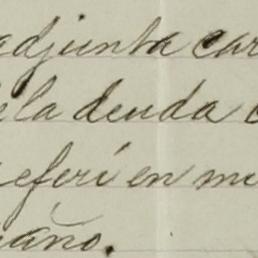 adjunta car
de la deuda c
referí en mi
año.